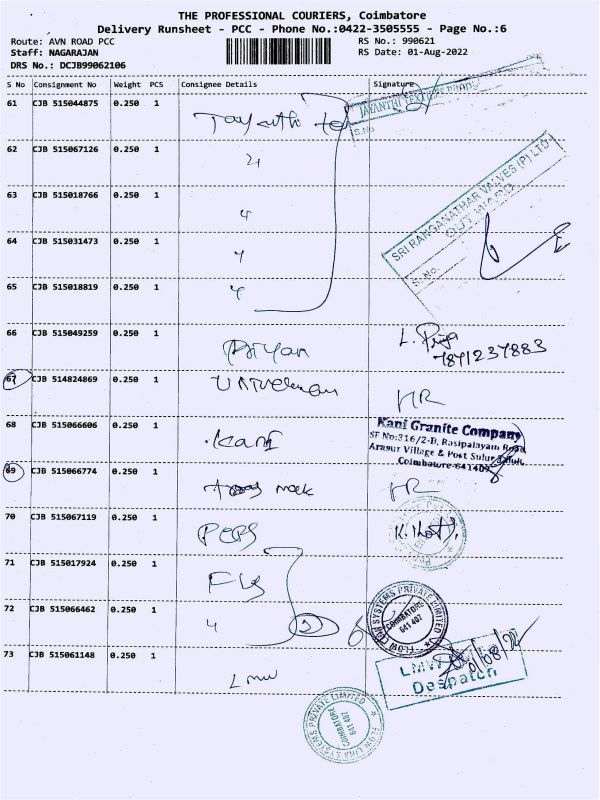 THE PROFESSIONAL COURIERS, Coimbatore
Delivery Runsheet - PCC - Phone No.:0422-3505555 - Page No.:6
Route: AVN ROAD PCC
RS No.: 990621
Staff: NAGARAJAN
RS Date: 01-Aug-2022
DRS No.: DCJB99062106
S No Consignment No Weight PCS Consignee Details Signature
61 CJB 515044875 0.250 1
JAYANTHI
S.No
62 CJB 515067126 0.250 1
63 CJB 515018766 0.250 1
SRI RANGANATHAR VALVES (P) LTD
OUTWARD
S. No.
64 CJB 515031473 0.250 1
65 CJB 515018819 0.250 1
66 CJB 515049259 0.250 1 L. Priya
7871237883
67 CJB 514824869 0.250 1 HR
68 CJB 515066606 0.250 1 Kani
Kani Granite Company
SF No:316/2-B, Rasipalayam Road,
Arasur Village & Post Sulur Taluk,
Coimbatore-641407
69 CJB 515066774 0.250 1 HR
70 CJB 515067119 0.250 1 PEPS
71 CJB 515017924 0.250 1
72 CJB 515066462 0.250 1 2
FLOW LINK SYSTEMS PRIVATE LIMITED
COIMBATORE
641 407
73 CJB 515061148 0.250 1 LMW
Despatch
FLOW LINK SYSTEMS PRIVATE LIMITED
COIMBATORE
641 407